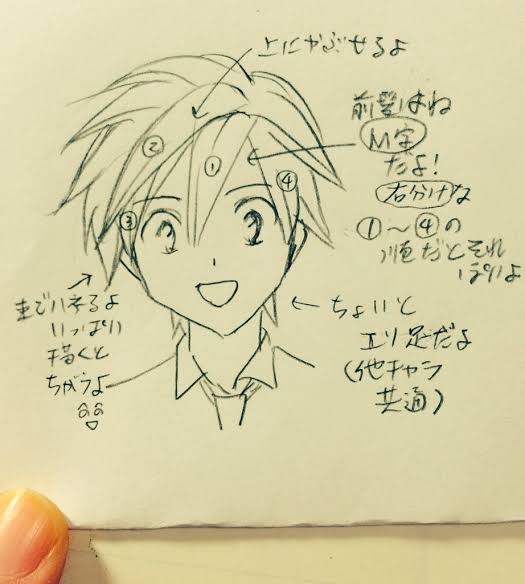 上にかぶせるよ
前髪はね
M字
だよ!
右分けな
①~④の
順だとそれ
ぽいよ
②
①
④
③
ハネるよ
いっぱい
描くと
ちがうよ
← ちょいと
エリ足だよ
(他キャラ
共通)